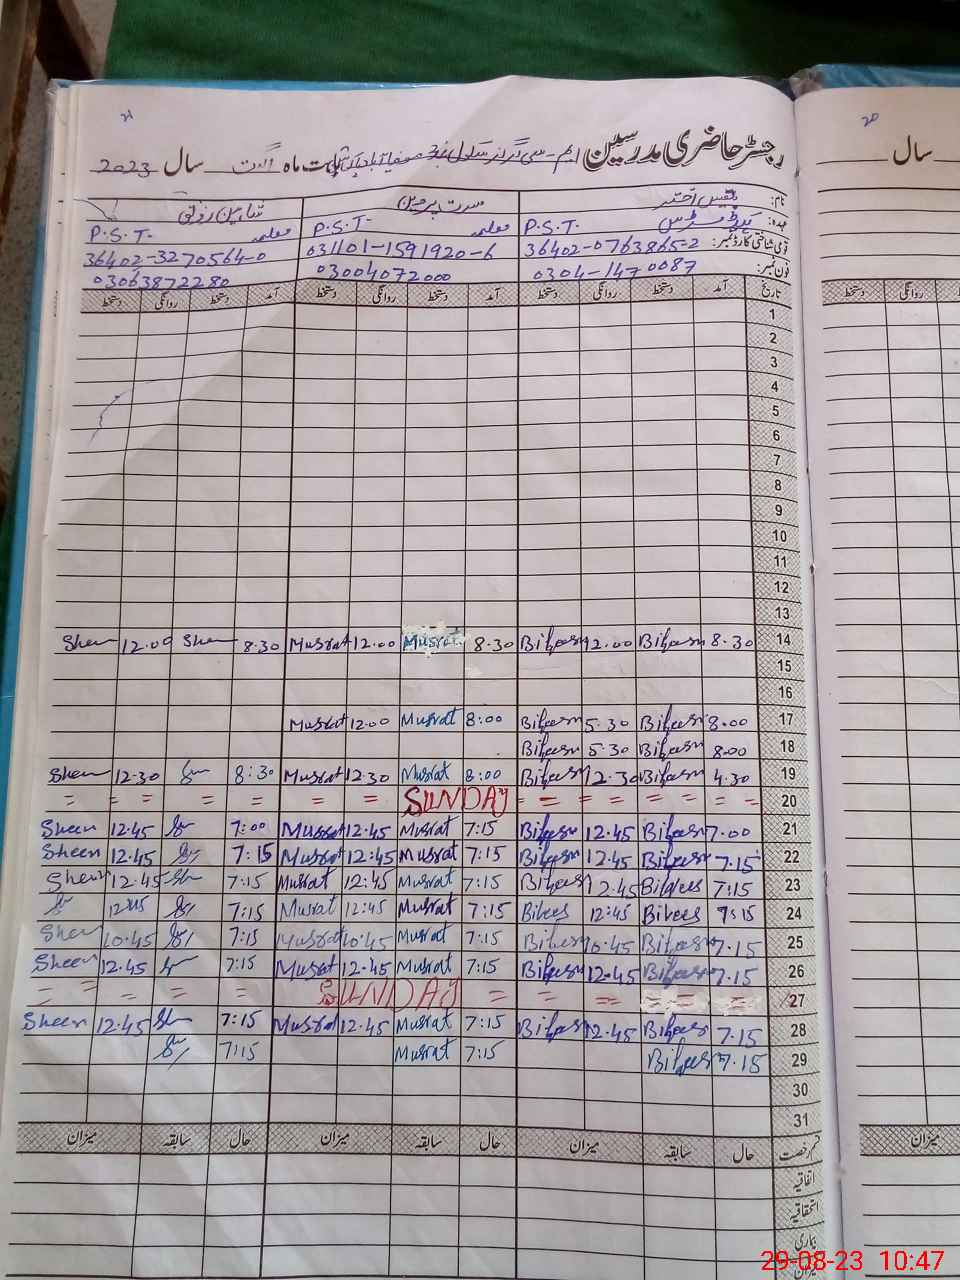 21
رجسٹر حاضری مدرسین ایم۔سی گرلز سکول نمبر بابت ماہ اگست سال 2023
نام: بلقیس اختر مسرت پروین
عہدہ: P.S.T. معلمہ P.S.T. معلمہ P.S.T.
قومی شناختی کارڈ نمبر: 36402-0763865-2 031101-1591920-6 36402-3270564-0
فون نمبر: 0304-1470087 03004072000 03063872280
تاریخ آمد دستخط روانگی دستخط آمد دستخط روانگی دستخط آمد دستخط روانگی دستخط
1
2
3
4
5
6
7
8
9
10
11
12
13
Sheen 12.00 Sheen 8.30 Musrat 12.00 Musrat 8.30 Bilqees 12.00 Bilqees 8.30 14
15
16
Musrat 12.00 Musrat 8:00 Bilqees 5.30 Bilqees 8.00 17
Bilqees 5.30 Bilqees 8.00 18
Sheen 12.30 8:30 Musrat 12.30 Musrat 8:00 Bilqees 12.30 Bilqees 4.30 19
= = = = = = = SUNDAY = = = = = = = 20
Sheen 12.45 7:00 Musrat 12.45 Musrat 7:15 Bilqees 12.45 Bilqees 7.00 21
Sheen 12.45 7:15 Musrat 12:45 Musrat 7:15 Bilqees 12.45 Bilqees 7.15 22
Sheen 12.45 Sheen 7:15 Musrat 12:45 Musrat 7:15 Bilqees 12.45 Bilqees 7:15 23
12:45 7:15 Musrat 12:45 Musrat 7:15 Bilqees 12:45 Bilqees 7:15 24
Sheen 10.45 7:15 Musrat 10:45 Musrat 7:15 Bilqees 10.45 Bilqees 7.15 25
Sheen 12.45 7:15 Musrat 12.45 Musrat 7:15 Bilqees 12.45 Bilqees 7.15 26
= = = = = SUNDAY = = = = = = 27
Sheen 12.45 7:15 Musrat 12.45 Musrat 7:15 Bilqees 12.45 Bilqees 7.15 28
7:15 Musrat 7:15 Bilqees 7.15 29
30
31
قسم رخصت حال سابقہ میزان حال سابقہ میزان حال سابقہ میزان
اتفاقیہ
استحقاقیہ
بیماری
میزان
20
سال
دستخط روانگی دستخط
میزان
29-08-23 10:47